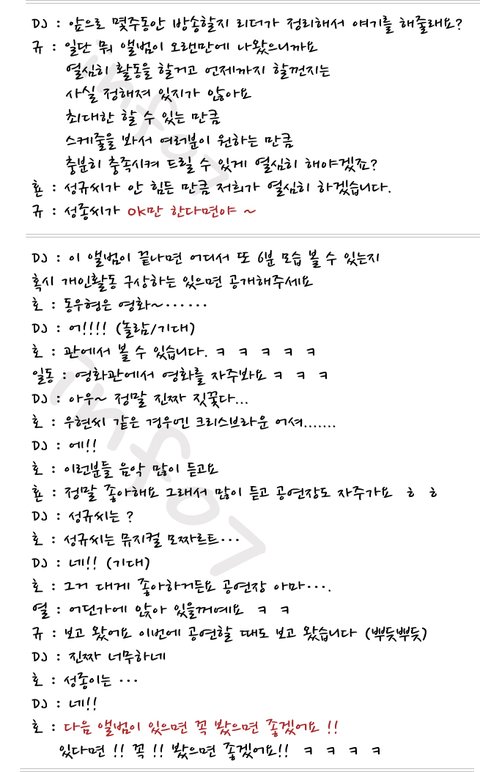 DJ : 앞으로 몇주동안 방송할지 리더가 정리해서 얘기를 해줄래요?
규 : 일단 뭐 앨범이 오랜만에 나왔으니까요
열심히 활동을 할거고 언제까지 할껀지는
사실 정해져 있지가 않아요
최대한 할 수 있는 만큼
스케줄을 봐서 여러분이 원하는 만큼
충분히 충족시켜 드릴 수 있게 열심히 해야겠죠?
횬 : 성규씨가 안 힘든 만큼 저희가 열심히 하겠습니다.
규 : 성종씨가 OK만 한다면야 ~
DJ : 이 앨범이 끝나면 어디서 또 6분 모습 볼 수 있는지
혹시 개인활동 구상하는 있으면 공개해주세요
호 : 동우형은 영화~······
DJ : 어!!!! (놀람/기대)
호 : 관에서 볼 수 있습니다. ㅋ ㅋ ㅋ ㅋ ㅋ
일동 : 영화관에서 영화를 자주봐요 ㅋ ㅋ ㅋ
DJ : 아우~ 정말 진짜 짓꿎다...
호 : 우현씨 같은 경우엔 크리스브라운 어셔.......
DJ : 에!!
호 : 이런분들 음악 많이 듣고요
횬 : 정말 좋아해요 그래서 많이 듣고 공연장도 자주가요 ㅎ ㅎ
DJ : 성규씨는 ?
호 : 성규씨는 뮤지컬 모짜르트···
DJ : 네!! (기대)
호 : 그거 대게 좋아하거든요 공연장 아마···.
열 : 어딘가에 앉아 있을꺼예요 ㅋ ㅋ
규 : 보고 왔어요 이번에 공연할 때도 보고 왔습니다 (뿌듯뿌듯)
DJ : 진짜 너무하네
호 : 성종이는 ···
DJ : 네!!
호 : 다음 앨범이 있으면 꼭 봤으면 좋겠어요 !!
있다면 !! 꼭 !! 봤으면 좋겠어요!! ㅋ ㅋ ㅋ ㅋ
inf07
inf07